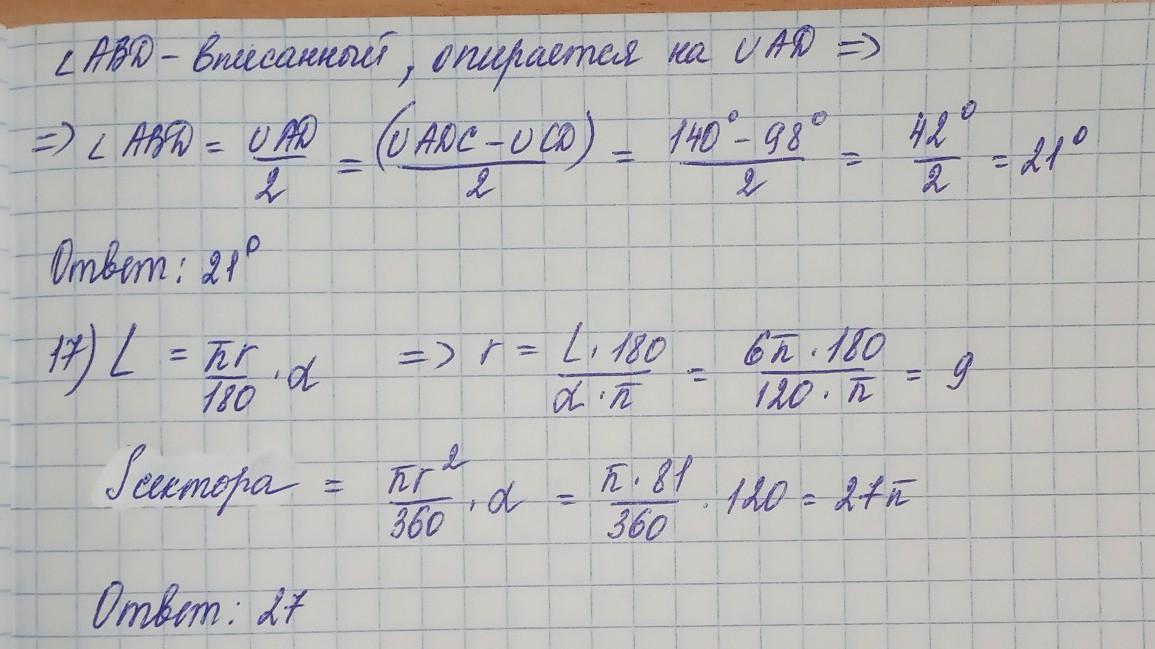 ∠ABD - вписанный, опирается на ∪AD =>
=> ∠ABD = ∪AD/2 = (∪ADC - ∪CD)/2 = 140° - 98°/2 = 42°/2 = 21°
Ответ: 21°
17) L = πr/180 · α => r = L · 180/α · π = 6π · 180/120 · π = 9
Sсектора = πr²/360 · α = π · 81/360 · 120 = 27π
Ответ: 27